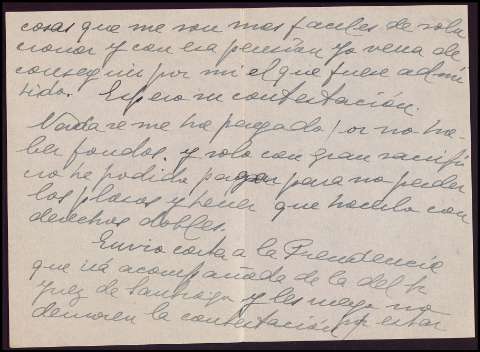 cosas que me son mas faciles de solu
cionar y con esa pensión yo veria de
conseguir por mi el que fuese admi
tido. Espero su contestación.
Nada se me ha pagado por no ha-
ber fondos, y solo con gran sacrifi
cio he podido pagar para no perder
los plazos y tener que hacerlo con
derechos dobles.
Envio carta a la Presidencia
que irá acompañada de la del Sr
Juez de Santiago y les ruego no
demoren la contestación estar